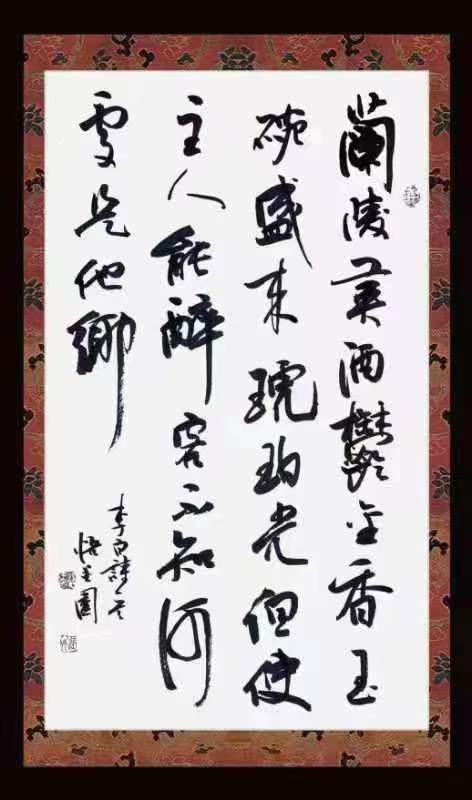 蘭陵美酒鬱金香玉
碗盛来琥珀光但使
主人能醉客不知何
處是他鄉
李白詩